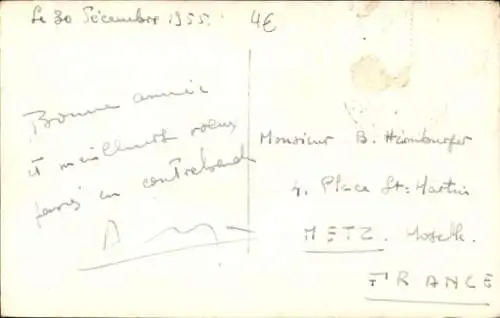 Le 30 Décembre 1955.
4€
Bonne année
et meilleurs voeux
passés en contrebande
Monsieur B. Hamburger
4, Place St-Martin
METZ. Moselle.
FRANCE